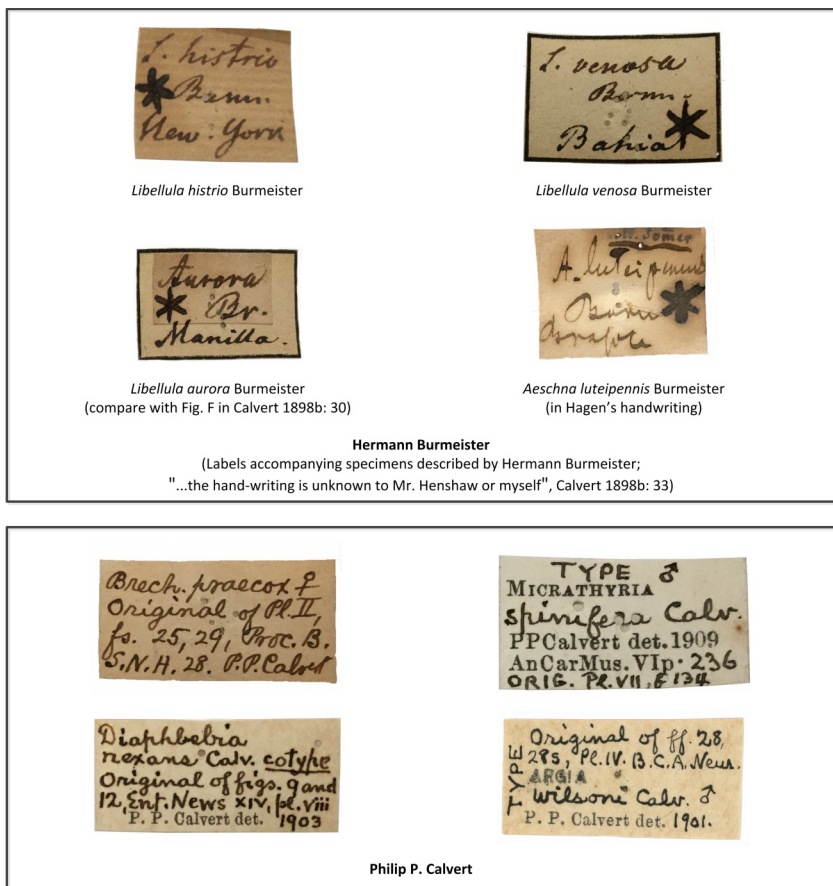 L. histrio
Burm.
New-York
Libellula histrio Burmeister
L. venosa
Burm.
Bahia
Libellula venosa Burmeister
Aurora
Br.
Manilla.
Libellula aurora Burmeister
(compare with Fig. F in Calvert 1898b: 30)
Somer
A. luteipennis
Burm
Aeschna luteipennis Burmeister
(in Hagen’s handwriting)
Hermann Burmeister
(Labels accompanying specimens described by Hermann Burmeister;
"...the hand-writing is unknown to Mr. Henshaw or myself", Calvert 1898b: 33)
Brech. praecox ♀
Original of Pl. II,
fs. 25, 29, Proc. B.
S.N.H. 28. P.P. Calvert
TYPE ♂
MICRATHYRIA
spinifera Calv.
PPCalvert det. 1909
AnCarMus. VIp. 236
ORIG. Pl. VII, f 134
Diaphlebia
nexans Calv. cotype
Original of figs. 9 and
12, Ent. News XIV, pl. viii
P. P. Calvert det. 1903
TYPE
Original of ff. 28,
28s, Pl. IV. B.C.A. Neur.
ARGIA
wilsoni Calv. ♂
P. P. Calvert det. 1901.
Philip P. Calvert